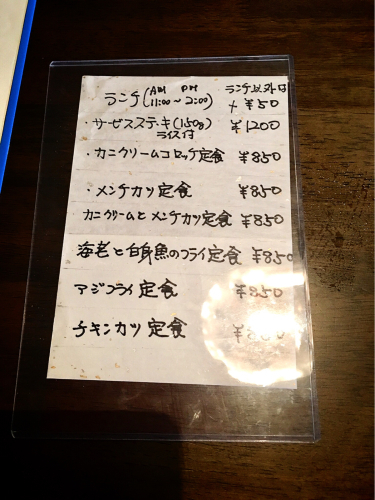 ランチ(AM 11:00~PM 2:00) ランチ以外は +¥50
・サービスステーキ(150g) ¥1200
ライス付
・カニクリームコロッケ定食 ¥850
・メンチカツ定食 ¥850
カニクリームとメンチカツ定食 ¥850
海老と白身魚のフライ定食 ¥850
アジフライ定食 ¥850
チキンカツ定食 ¥850